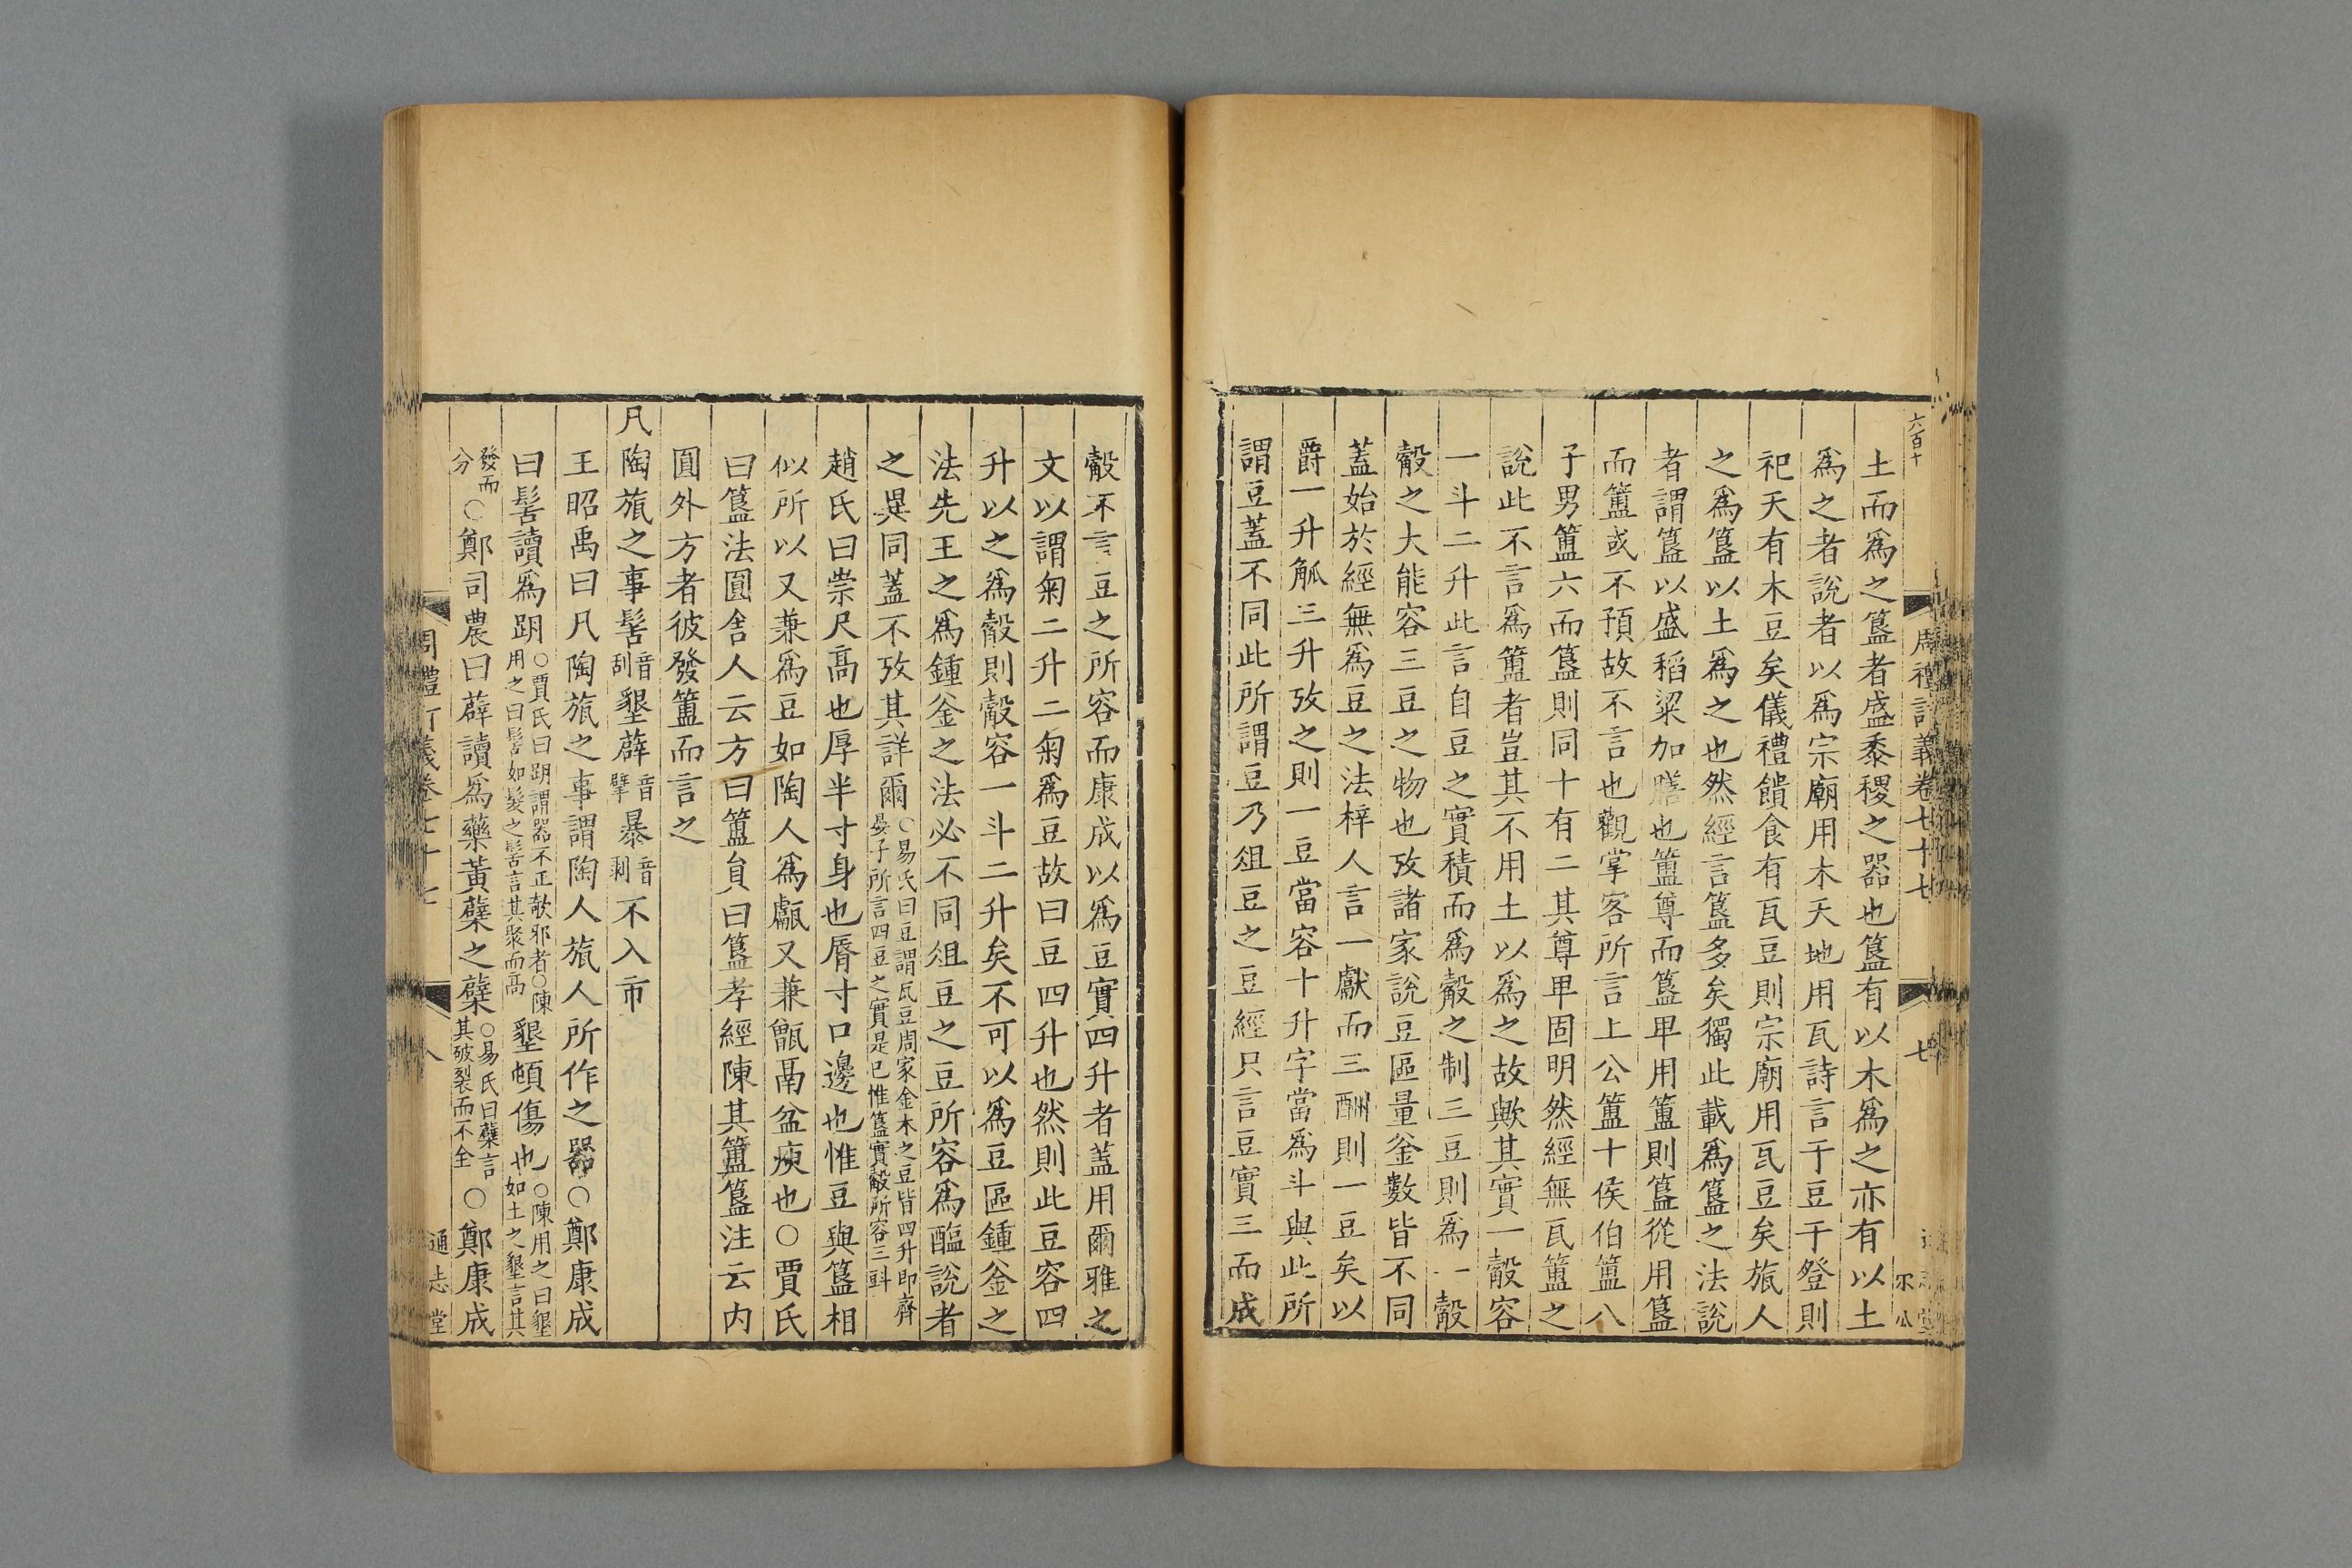 六百十
周禮訂義卷七十七
七
土而爲之簋者盛黍稷之器也簋有以木爲之亦有以土
爲之者說者以爲宗廟用木天地用瓦詩言于豆于登則
祀天有木豆矣儀禮饋食有瓦豆則宗廟用瓦豆矣旊人
之爲簋以土爲之也然經言簋多矣獨此載爲簋之法說
者謂簋以盛稻粱加膳也簠尊而簋𤰞用簠則簋從用簋
而簠或不預故不言也觀掌客所言上公簠十侯伯簠八
子男簠六而簋則同十有二其尊𤰞固明然經無瓦簠之
說此不言爲簠者豈其不用土以爲之故歟其實一觳容
一斗二升此言自豆之實積而爲觳之制三豆則爲一觳
觳之大能容三豆之物也攷諸家說豆區量釜數皆不同
蓋始於經無爲豆之法梓人言一獻而三酬則一豆矣以
爵一升觚三升攷之則一豆當容十升字當爲斗與此所
謂豆蓋不同此所謂豆乃俎豆之豆經只言豆實三而成
觳不言豆之所容而康成以爲豆實四升者蓋用爾雅之
文以謂匊二升二匊爲豆故曰豆四升也然則此豆容四
升以之爲觳則觳容一斗二升矣不可以爲豆區鍾釜之
法先王之爲鍾釜之法必不同俎豆之豆所容爲醢說者
之異同蓋不攷其詳爾○易氏曰豆謂瓦豆周家金木之豆皆四升即齊
晏子所言四豆之實是已惟簋實觳所容三㪷
趙氏曰崇尺高也厚半寸身也脣寸口邊也惟豆與簋相
似所以又兼爲豆如陶人爲甗又兼甑鬲盆庾也○賈氏
曰簋法圓舍人云方曰簠貟曰簋孝經陳其簠簋注云内
圓外方者彼發簠而言之
凡陶旊之事髺音刮墾薜音擘暴音剝不入市
王昭禹曰凡陶旊之事謂陶人旊人所作之器○鄭康成
曰髺讀爲跀○賈氏曰跀謂器不正欹邪者○陳
用之曰髺如髪之髺言其聚而高墾頓傷也○陳用之曰墾
如土之墾言其
發而
分○鄭司農曰薜讀爲藥黃蘗之蘗○易氏曰蘗言
其破裂而不全○鄭康成
八
通志堂